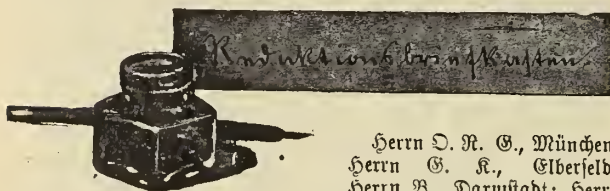 Redaktionsbriefkasten.
Herrn O. R. G., München
Herrn G. K., Elberfeld
Herrn B., Darmstadt; Herr